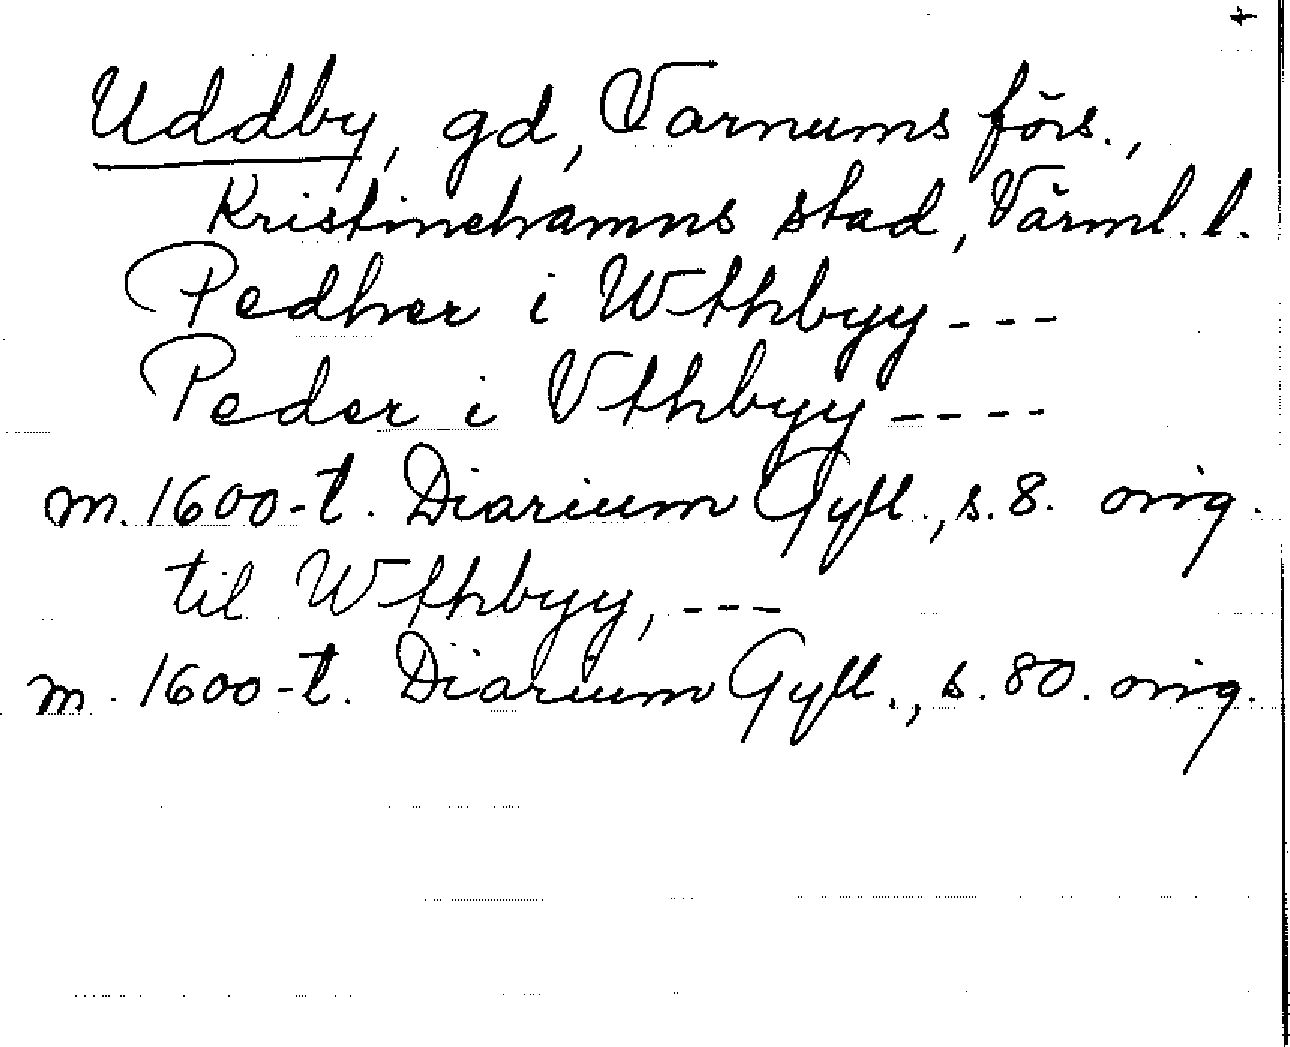 +
Uddby, gd, Varnums förs.,
Kristinehamns stad, Värml. l.
Pedher i Wthbyy - - -
Peder i Vthbyy - - - -
m. 1600-t. Diarium Gyll., s. 8. orig.
til Wthbyy, - - -
m. 1600-t. Diarium Gyll., s. 80. orig.